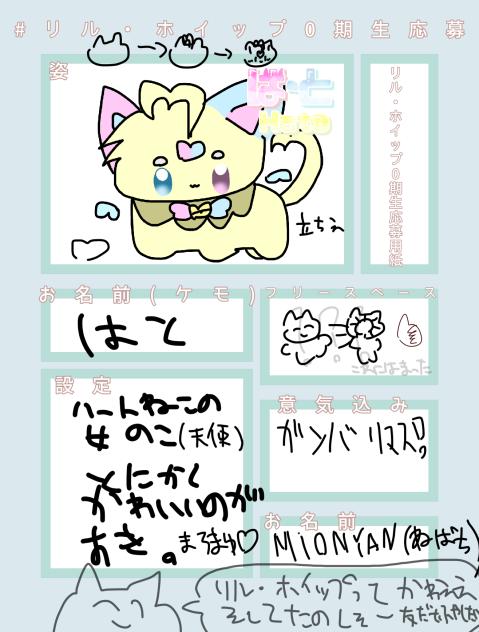 #リル・ホイップ0期生応募
姿
はーと
立ちえ
リル・ホイップ0期生応募用紙
お名前(ケモ)
はと
フリースペース
これにはまった
設定
ハートねこの
女のこ(天使)
とにかく
かわいいのが
すき。
意気込み
ガンバリマス!!
お名前
MiONYAN(ねばち)
リル・ホイップって かわええ
そしてたのしそー